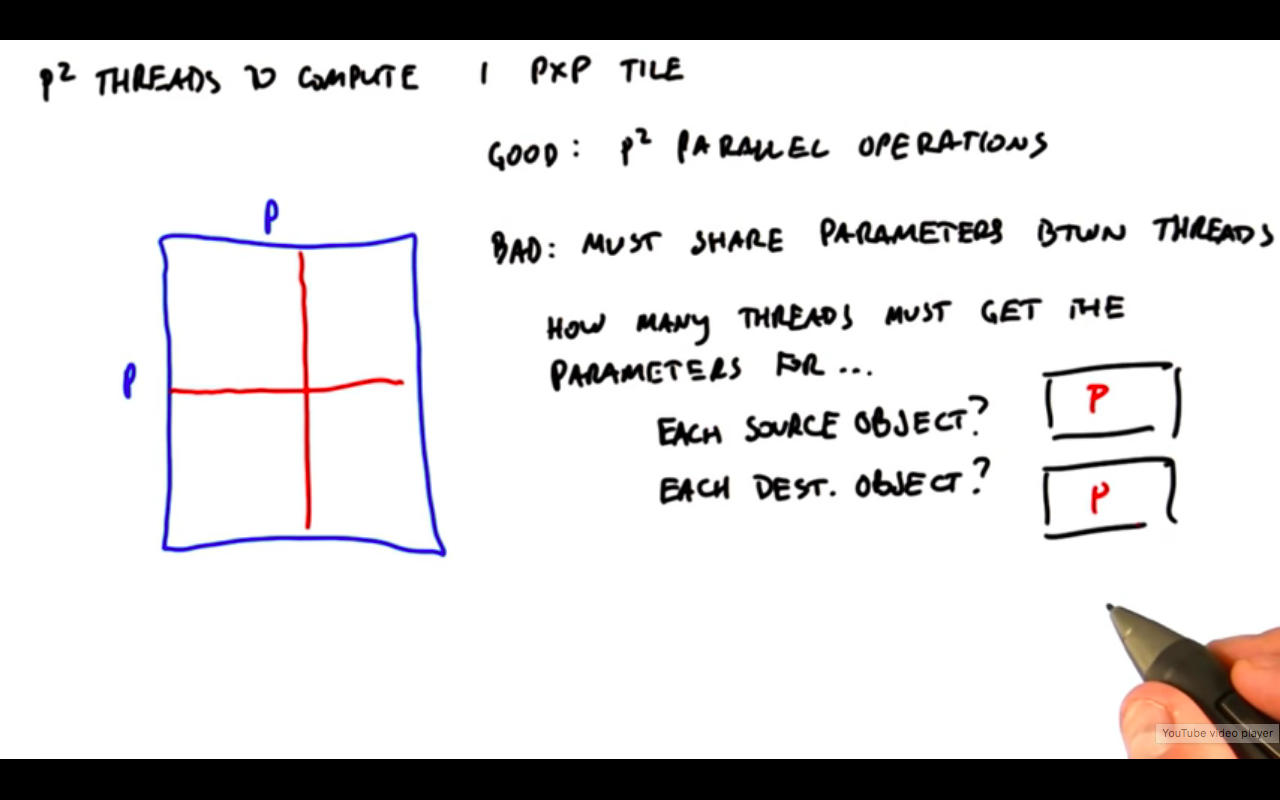 P² THREADS TO COMPUTE 1 PXP TILE
GOOD: P² PARALLEL OPERATIONS
P
BAD: MUST SHARE PARAMETERS BTWN THREADS
HOW MANY THREADS MUST GET THE
PARAMETERS FOR...
P
EACH SOURCE OBJECT? P
EACH DEST. OBJECT? P
YouTube video player